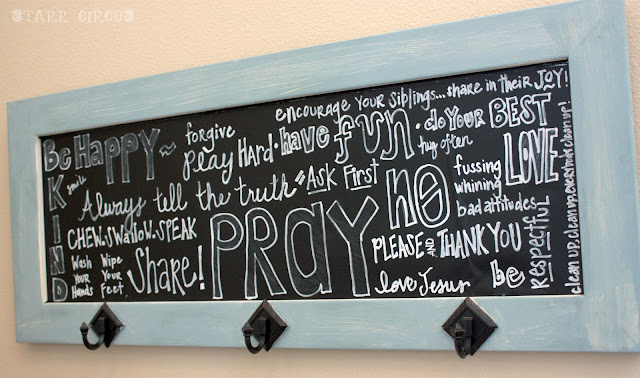 STARR CIRCUS
Be HAPPY~
BE KIND
smile
forgive
play HARD · have fun · do YOUR BEST
encourage YOUR SIBLINGS...share in their JOY!
hug often
Always tell the truth
Ask First
LOVE
CHEW-SWALLOW-SPEAK
Wash YOUR Hands
Wipe YOUR Feet
Share!
PRAY
no
fussing
whining
bad attitudes
PLEASE AND THANK YOU
love Jesus
be respectful
clean up, clean up, everyone clean up!